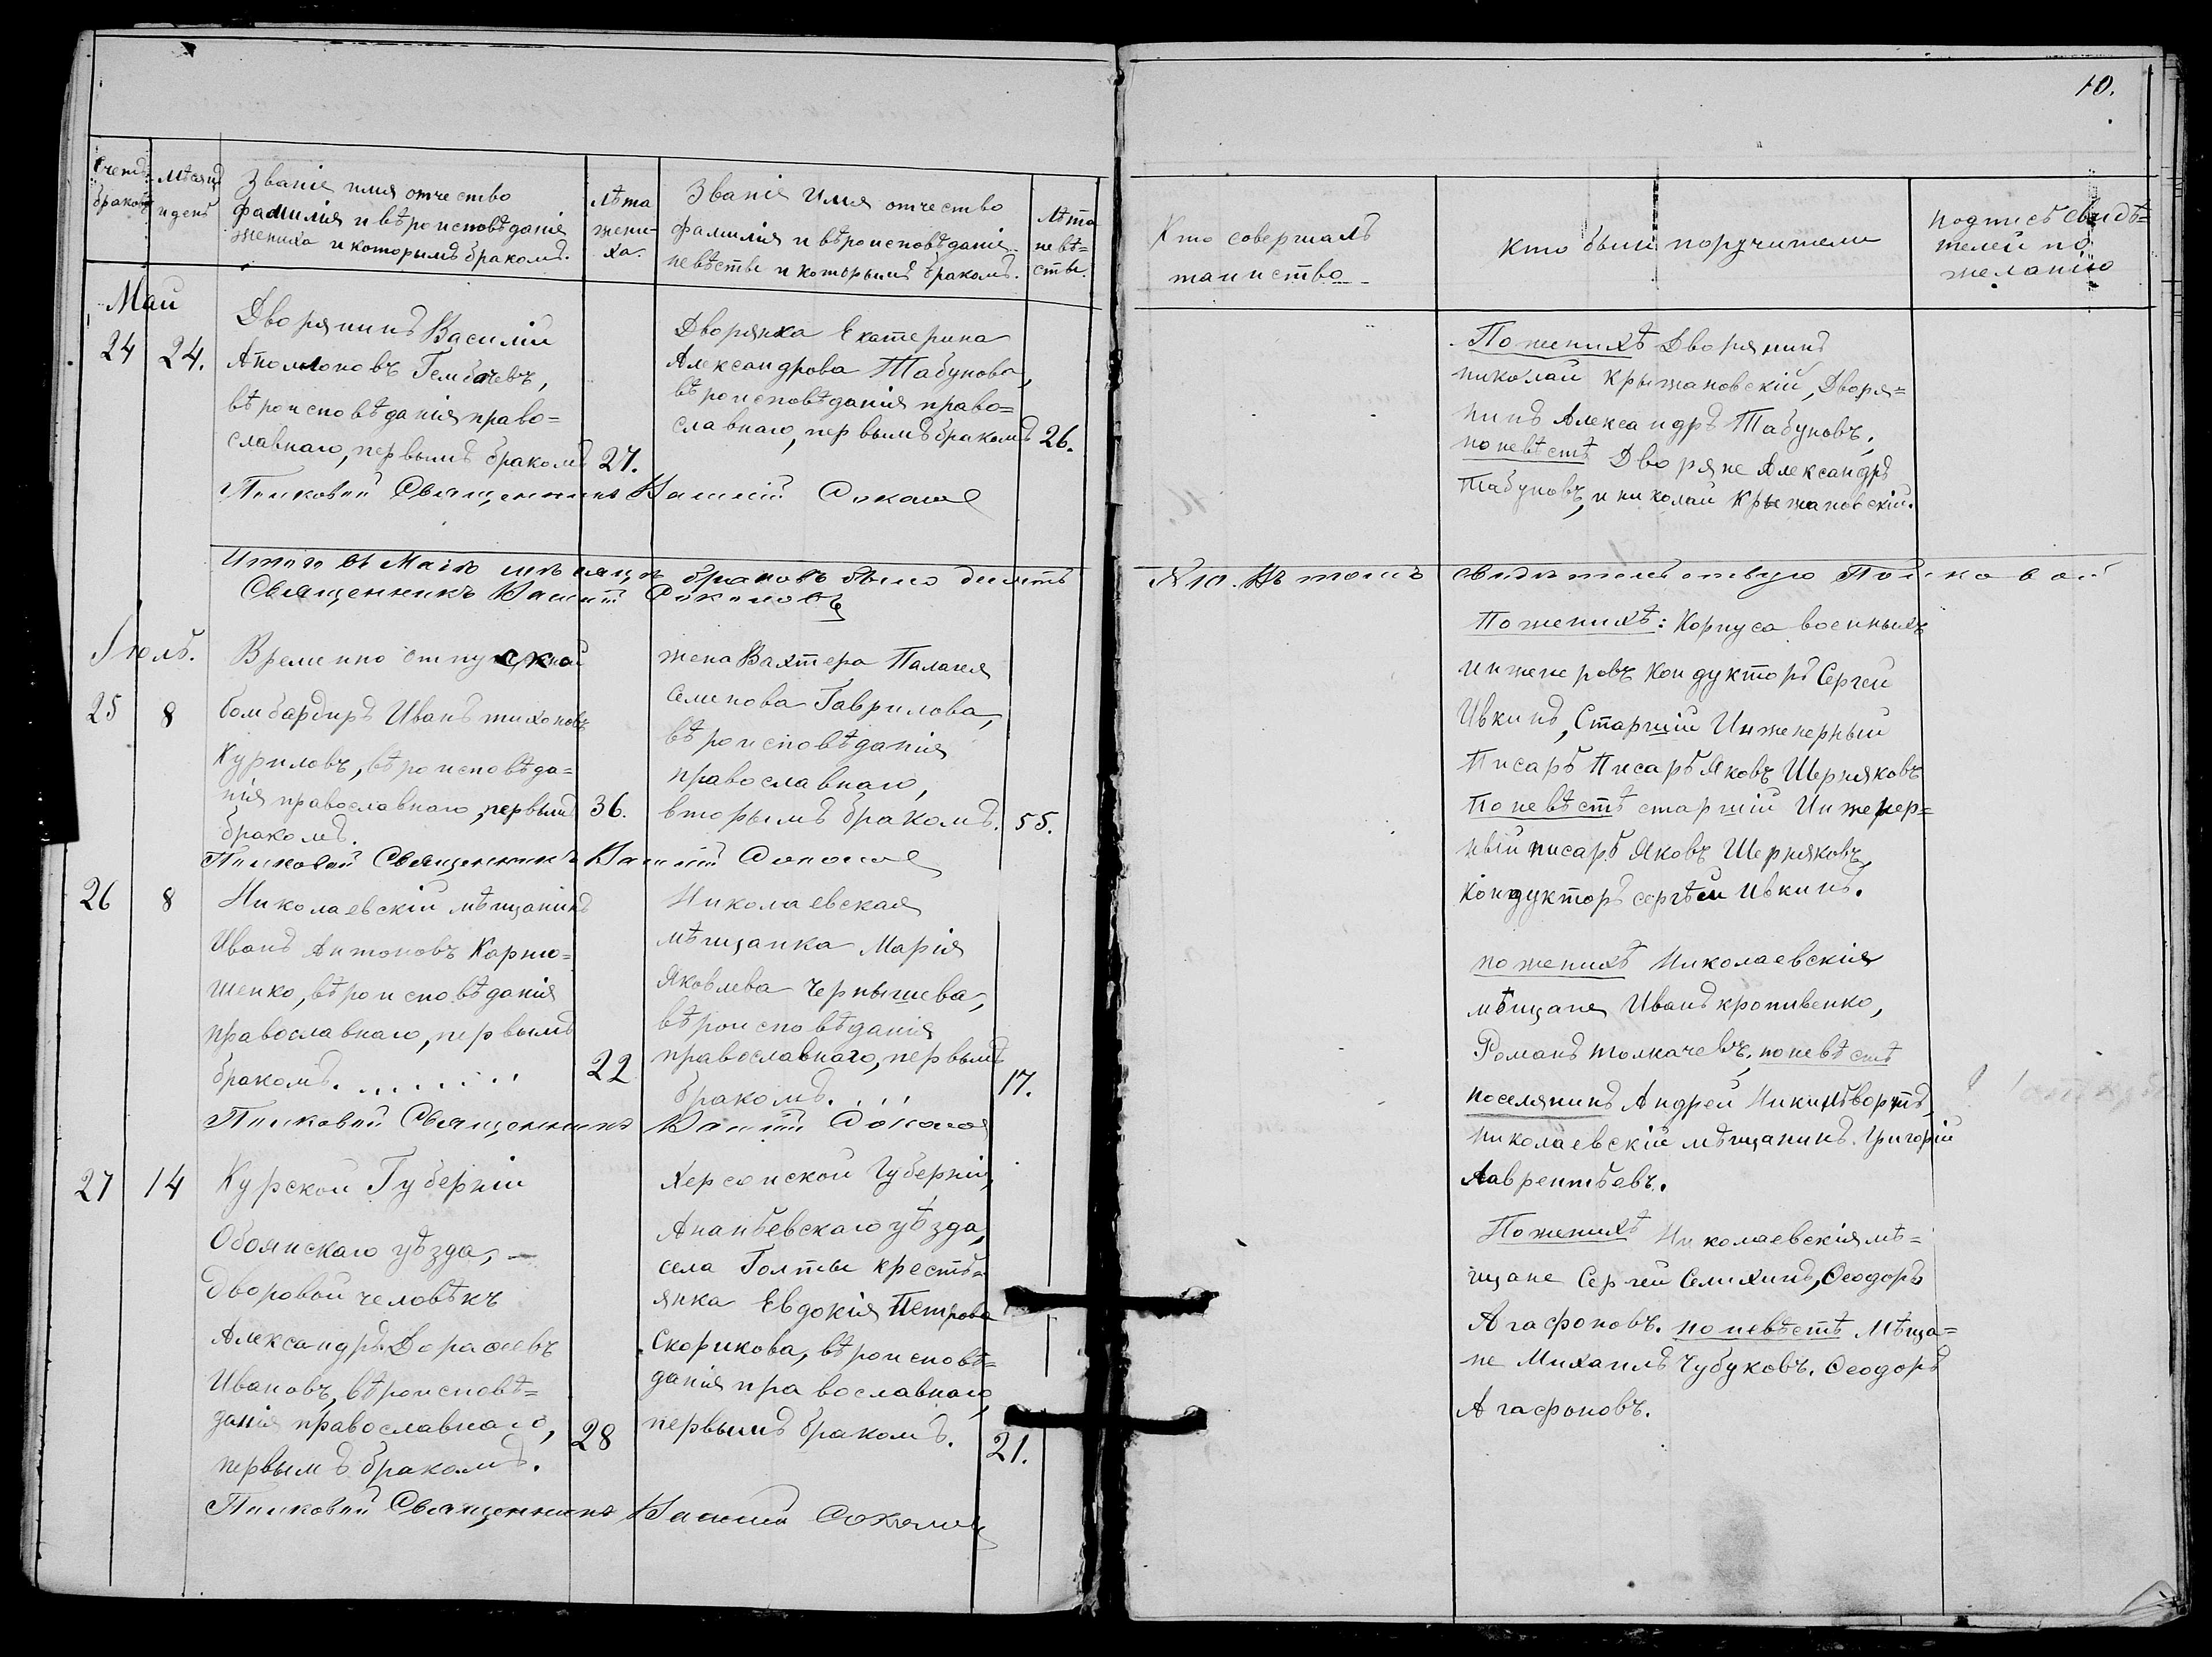 10.
Счетъ браковъ
Мѣсяцъ и день
Званіе имя отчество
фамилія и вѣроисповѣданія
жениха и которымъ бракомъ.
Лѣта
жени-
ха.
Званіе Имя отчество
фамилія и вѣроисповѣданія
невѣсты и которымъ бракомъ.
Лѣта
невѣ=
сты.
Кто совершалъ
таинство
Кто были поручители
подпись свидѣ=
телей по
желанію
Май
24
24.
Дворянинъ Василій
Аполлоновъ
вѣроисповѣданія право=
славнаго, первымъ бракомъ
27.
Дворянка Екатерина
Александрова Табунова,
вѣроисповѣданія право=
славнаго, первымъ бракомъ
26.
По женихѣ Дворянинъ
николай Крыжановскій, Дворя=
нинъ Александръ Табуновъ,
по невѣстѣ Дворяне Александръ
Табуновъ, и николай Крыжановскій.
Полковой Священникъ Василій Соколовъ
Итого въ Маіѣ мѣсяцѣ браковъ было десять
№ 10. Въ томъ свидѣтельствую Полковой
Священникъ Василій Соколовъ
Іюль.
25
8
Временно отпускной
бомбардиръ Иванъ тихоновъ
Куриловъ, вѣроисповѣда=
нія православнаго, первымъ
бракомъ.
36.
жена Вахтера Палагея
Семенова Гаврилова,
вѣроисповѣданія
православнаго,
вторымъ бракомъ.
55.
По женихѣ: Корпуса военныхъ
инженеровъ Кондукторъ Сергей
Ивкинъ, Старшій Инженерный
Писарь Писарь Яковъ Шерняковъ
По невѣстѣ старшій Инженер=
ный писарь Яковъ Шерняковъ,
Кондукторъ сергѣй Ивкинъ.
Полковой Священникъ Василій Соколовъ
26
8
Николаевскій мѣщанинъ
Иванъ Антоновъ Карню=
шенко, вѣроисповѣданія
православнаго, первымъ
бракомъ. . . . . . . .
22
Николаевская
мѣщанка Марія
Яковлева Чернышева,
вѣроисповѣданія
православнаго, первымъ
бракомъ. . . .
17.
по женихѣ Николаевскія
мѣщане Иванъ кропивенко,
Романъ толкачевъ, по невѣстѣ
поселянинъ Андрей
николаевскій мѣщанинъ Григорій
Лаврентьевъ.
Полковой Священникъ Василій Соколовъ
27
14
Курской Губерніи
Обоянскаго уѣзда, —
дворовой человѣкъ
Александръ Дорофеевъ
Ивановъ, вѣроисповѣ=
данія православнаго,
первымъ бракомъ.
28
Херсонской Губерніи,
Ананьевскаго уѣзда,
села Голты кресть=
янка Евдокія Петрова
Скорикова, вѣроисповѣ=
данія православнаго,
первымъ бракомъ.
21.
По женихѣ Николаевскія мѣ=
щане Сергей Семихинъ, Ѳеодоръ
Агафоновъ. по невѣстѣ Мѣща=
не Михаилъ Чубуковъ. Ѳеодоръ
Агафоновъ.
Полковой Священникъ Василій Соколовъ